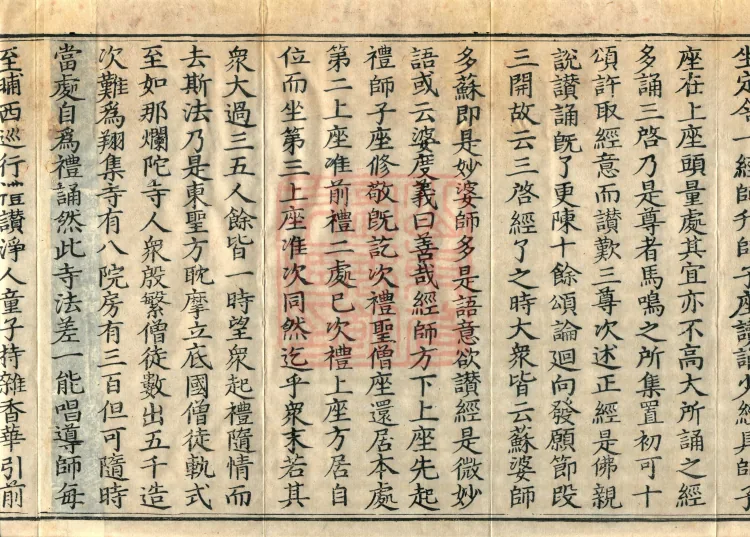 坐定令一經師升師子座讀誦少經其師子
座在上座頭量處其宜亦不高大所誦之經
多誦三啓乃是尊者馬鳴之所集置初可十
頌許取經意而讚歎三尊次述正經是佛親
說讚誦旣了更陳十餘頌論迴向發願節段
三開故云三啓經了之時大衆皆云蘇婆師
多蘇即是妙婆師多是語意欲讚經是微妙
語或云婆度義曰善哉經師方下上座先起
禮師子座修敬旣訖次禮聖僧座還居本處
第二上座准前禮二處已次禮上座方居自
位而坐第三上座准次同然迄乎衆末若其
衆大過三五人餘皆一時望衆起禮隨情而
去斯法乃是東聖方耽摩立底國僧徒軌式
至如那爛陀寺人衆殷繁僧徒數出五千造
次難爲翔集寺有八院房有三百但可隨時
當處自爲禮誦然此寺法差一能唱導師每
至晡西巡行禮讚淨人童子持雜香華引前